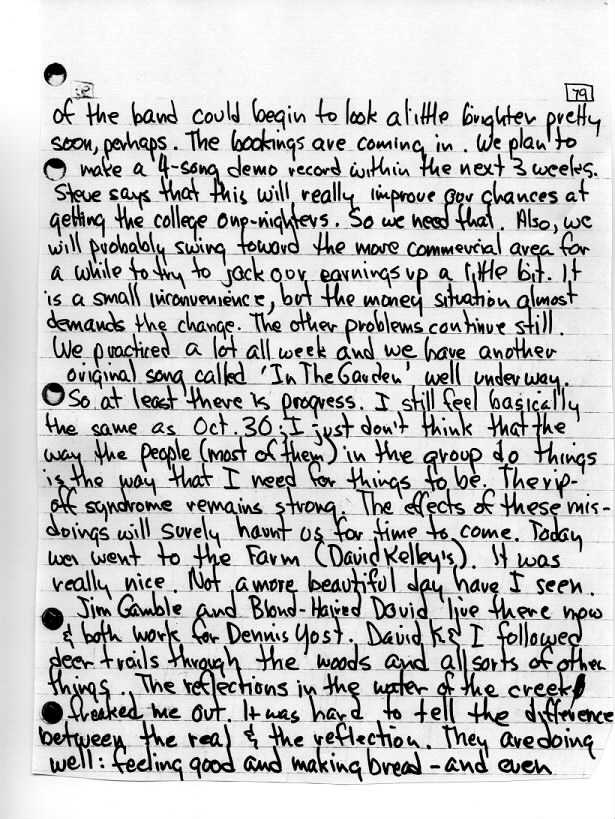 79
of the band could begin to look a little brighter pretty
soon, perhaps. The bookings are coming in. We plan to
make a 4-song demo record within the next 3 weeks.
Steve says that this will really improve our chances at
getting the college one-nighters. So we need that. Also, we
will probably swing toward the more commercial area for
a while to try to jack our earnings up a little bit. It
is a small inconvenience, but the money situation almost
demands the change. The other problems continue still.
We practiced a lot all week and we have another
original song called 'In The Garden' well underway.
So at least there is progress. I still feel basically
the same as Oct. 30; I just don't think that the
way the people (most of them) in the group do things
is the way that I need for things to be. The rip-
off syndrome remains strong. The effects of these mis-
doings will surely haunt us for time to come. Today
we went to the Farm (David Kelley's). It was
really nice. Not a more beautiful day have I seen.
Jim Gamble and Blond-Haired David live there now
& both work for Dennis Yost. David K. & I followed
deer trails through the woods and all sorts of other
things. The reflections in the water of the creek
freaked me out. It was hard to tell the difference
between the real & the reflection. They are doing
well: feeling good and making bread - and even